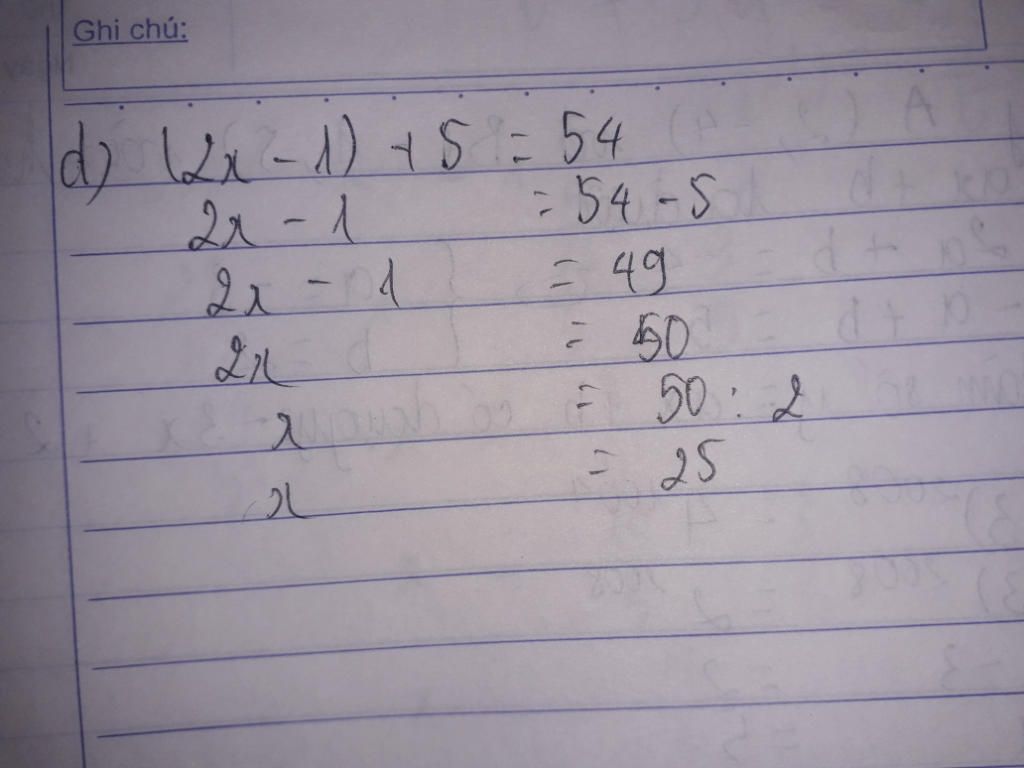 Ghi chú:
d) (2x - 1) + 5 = 54
2x - 1 = 54 - 5
2x - 1 = 49
2x = 50
x = 50 : 2
x = 25